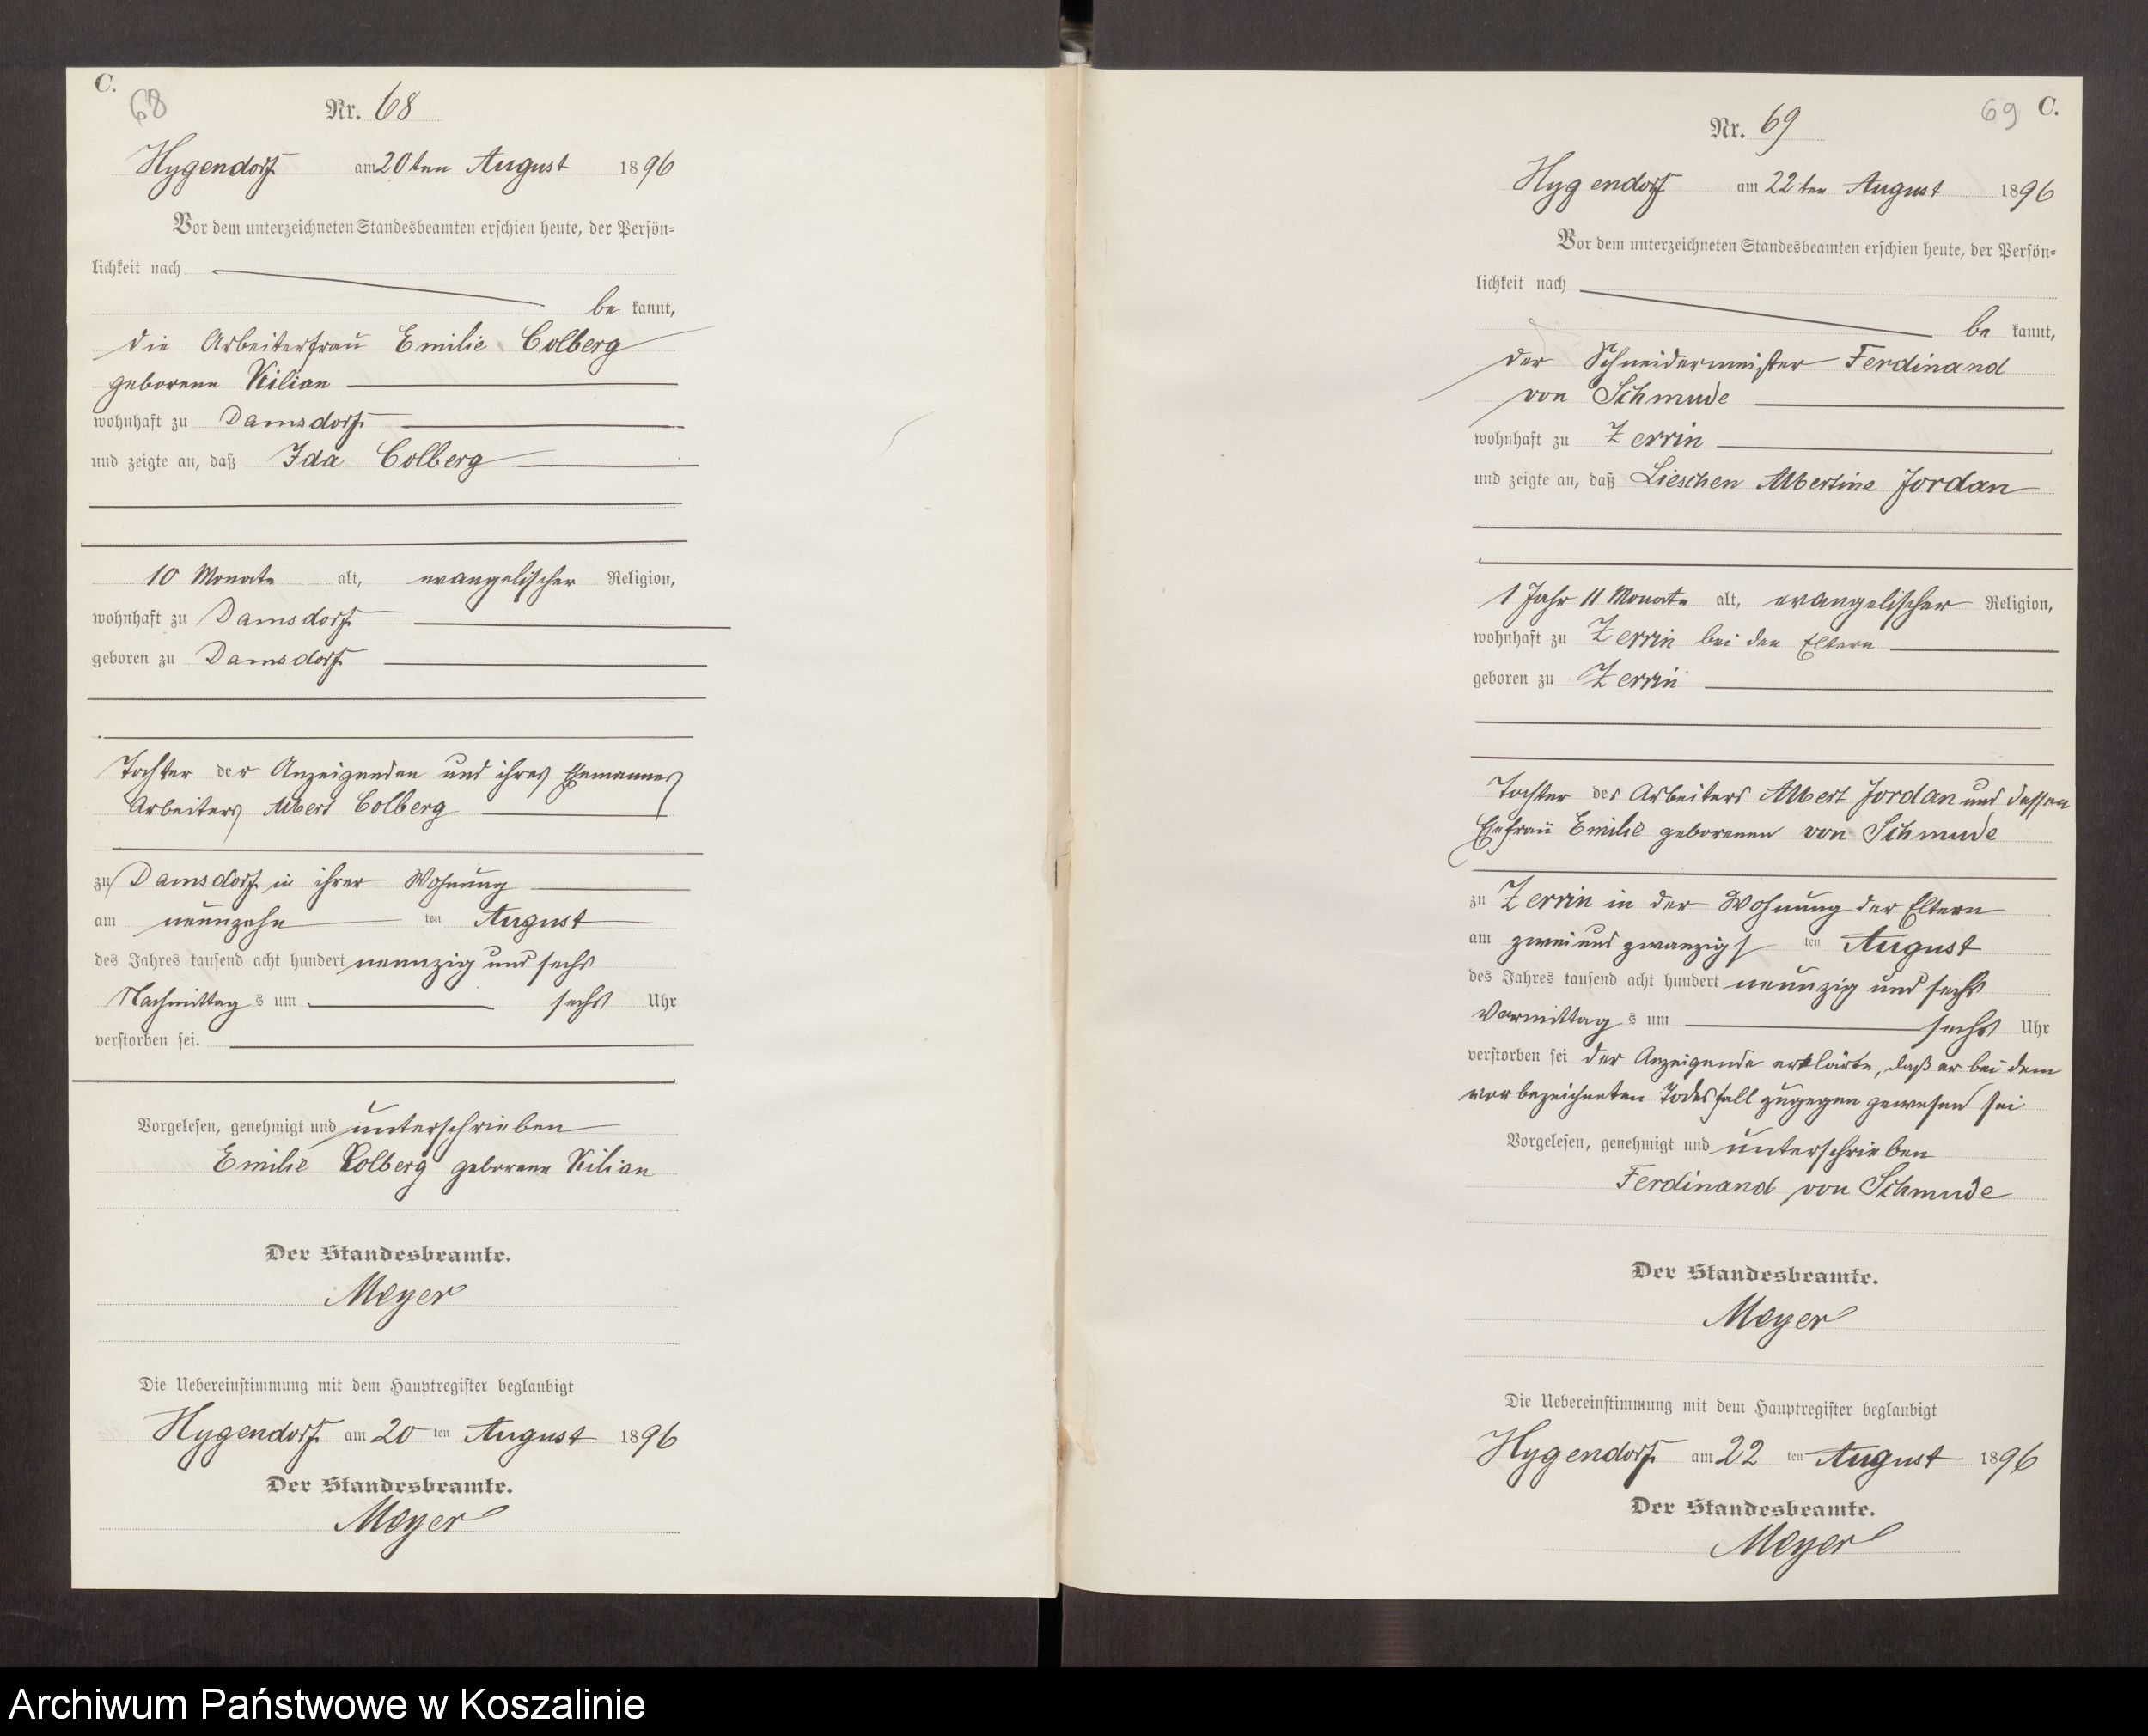 C.
68
Nr. 68
Hygendorf am 20ten August 1896
Vor dem unterzeichneten Standesbeamten erschien heute, der Persön-
lichkeit nach
be kannt,
die Arbeiterfrau Emilie Colberg
geborene Kilian
wohnhaft zu Damsdorf
und zeigte an, daß Ida Colberg
10 Monate alt, evangelischer Religion,
wohnhaft zu Damsdorf
geboren zu Damsdorf
Tochter der Anzeigenden und ihres Ehemannes
Arbeiters Albert Colberg
zu Damsdorf in ihrer Wohnung
am neunzehn ten August
des Jahres tausend acht hundert neunzig und sechs
Nachmittag s um sechs Uhr
verstorben sei.
Vorgelesen, genehmigt und unterschrieben
Emilie Colberg geborene Kilian
Der Standesbeamte.
Meyer
Die Uebereinstimmung mit dem Hauptregister beglaubigt
Hygendorf am 20 ten August 1896
Der Standesbeamte.
Meyer
69 C.
Nr. 69
Hygendorf am 22ten August 1896
Vor dem unterzeichneten Standesbeamten erschien heute, der Persön-
lichkeit nach
be kannt,
der Schneidermeister Ferdinand
von Schmude
wohnhaft zu Zerrin
und zeigte an, daß Lieschen Albertine Jordan
1 Jahr 11 Monate alt, evangelischer Religion,
wohnhaft zu Zerrin bei den Eltern
geboren zu Zerrin
Tochter des Arbeiters Albert Jordan und dessen
Ehefrau Emilie geborenen von Schmude
zu Zerrin in der Wohnung der Eltern
am zwei und zwanzigs ten August
des Jahres tausend acht hundert neunzig und sechs
Vormittag s um sechs Uhr
verstorben sei der Anzeigende erklärte, daß er bei dem
vorbezeichneten Todesfall zugegen gewesen sei
Vorgelesen, genehmigt und unterschrieben
Ferdinand von Schmude
Der Standesbeamte.
Meyer
Die Uebereinstimmung mit dem Hauptregister beglaubigt
Hygendorf am 22 ten August 1896
Der Standesbeamte.
Meyer
Archiwum Państwowe w Koszalinie